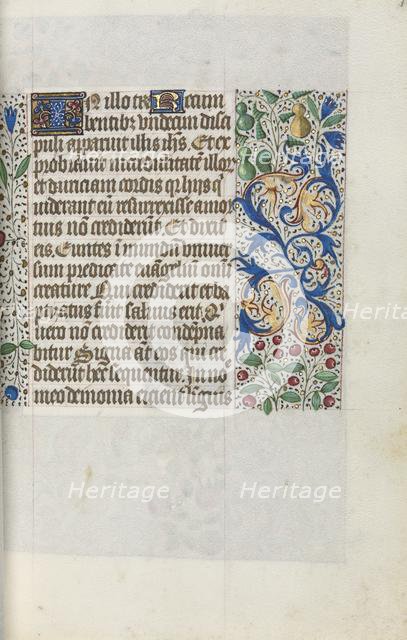 In illo tpe Recum
bentibz undecim disci
pulis apparuit illis ihs. Et ex
probrauit incredulitatē illoꝝ
et duriciam cordis qꝛ hiis qui
uiderant eū resurrexisse a mor
tuis nō crediderūt. Et dixit
eis. Euntes ī mundū vniuer
sum predicate euāgeliū omī
creature. Qui crediderit et ba
ptizatus fuit saluus erit. Qui
vero nō crediderit condepna
bitur Signa aūt eos qui cre
diderūt hec sequentur. In noīe
meo demonia eicient linguis
Heritage
Heritage
Heritage
Heritage